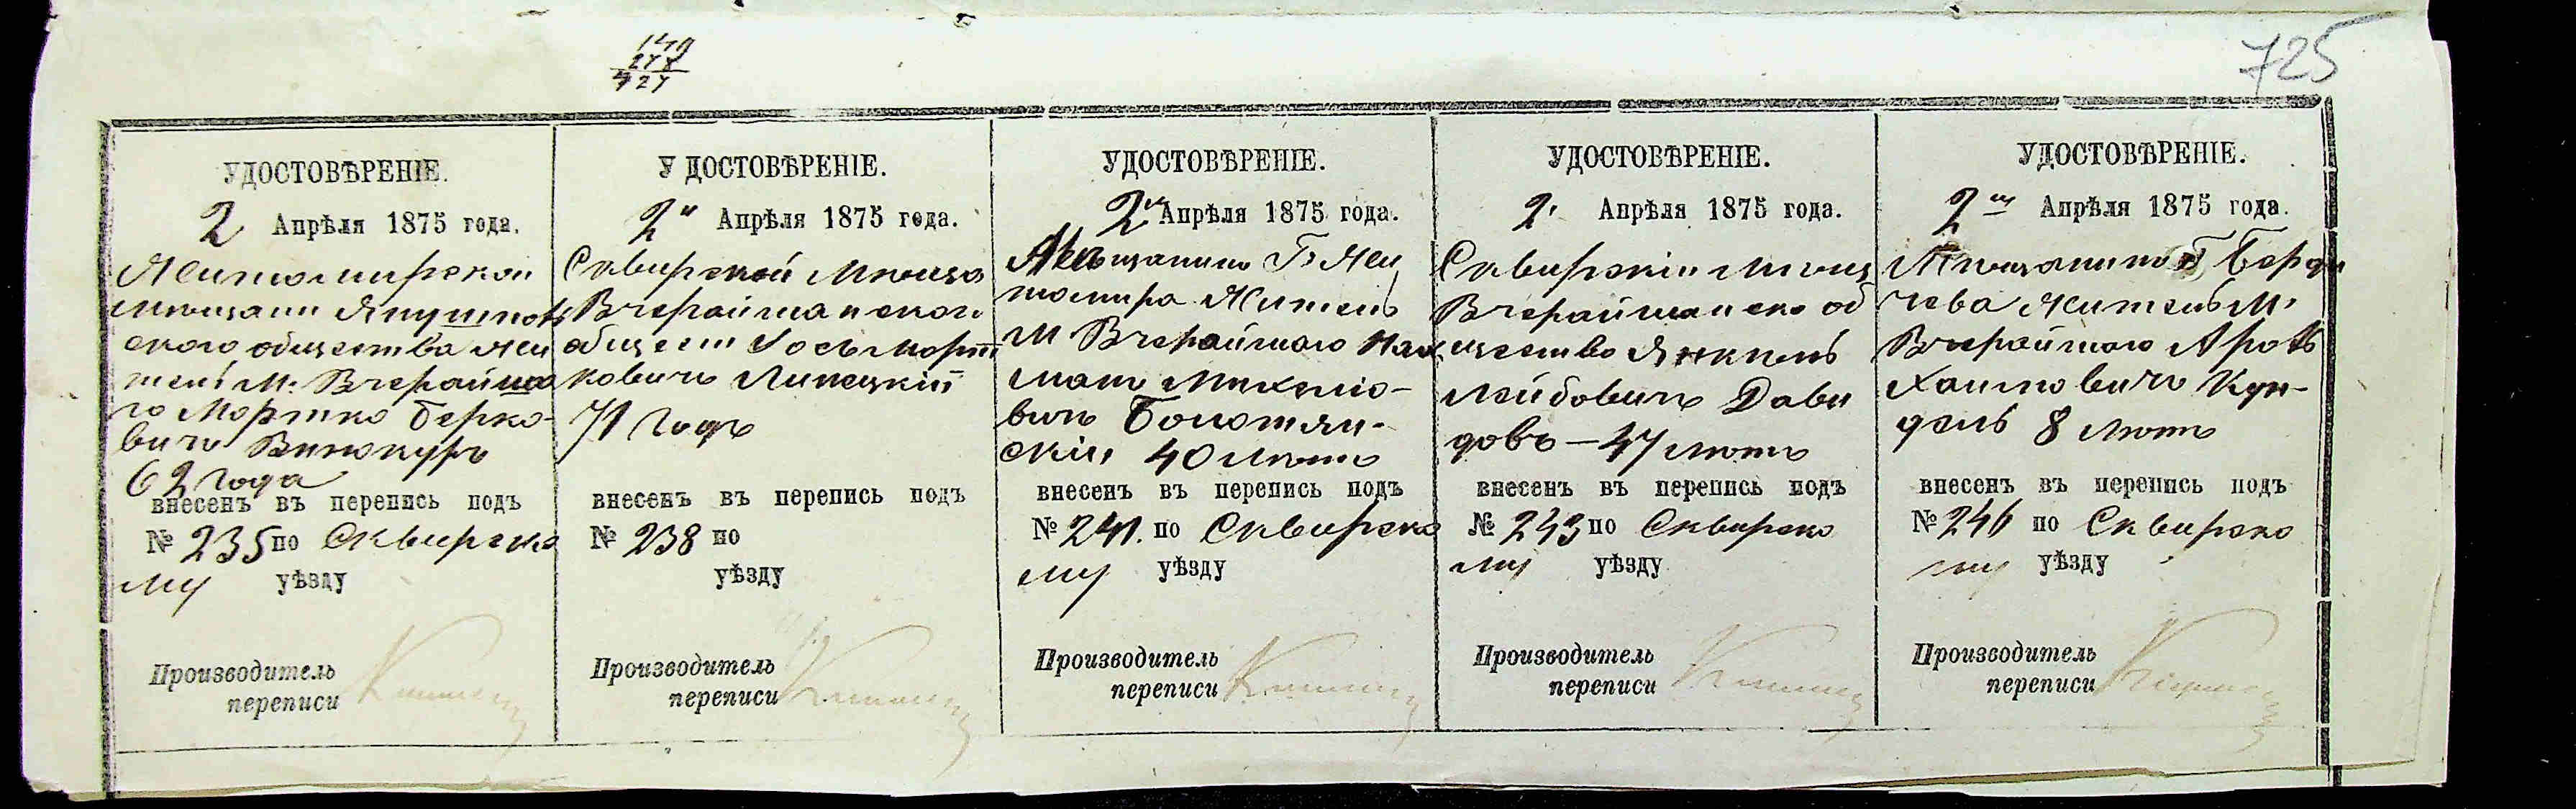 149
278
427
725
УДОСТОВѢРЕНІЕ.
2 Апрѣля 1875 года.
Житомирскои
мѣщани Япушпов
ского общества жи
тель М. Вчерайшо
го Моршко Берко-
вичъ Винокуръ
62 года
внесенъ въ перепись подъ
№ 235 по Сквирско
му уѣзду
Производитель
переписи
УДОСТОВѢРЕНІЕ.
2 Апрѣля 1875 года.
Сквирскій Мѣща
Вчерайшанского
общест Іось Морт
ковичъ Липецкій
71 Годъ
внесенъ въ перепись подъ
№ 238 по
уѣзду
Производитель
переписи
УДОСТОВѢРЕНІЕ.
2 Апрѣля 1875 года.
Мѣщанинъ Г. Жи
томира Житель
М Вчерайшаго
вичъ Болотян-
скій 40 лѣтъ
внесенъ въ перепись подъ
№ 241. по Сквирско
му уѣзду
Производитель
переписи
УДОСТОВѢРЕНІЕ.
2 Апрѣля 1875 года.
Сквирскій мѣщ
Вчерайшанско об
щество Янкель
Лейбовичъ Дави
довъ — 47 лѣтъ
внесенъ въ перепись подъ
№ 243 по Сквирско
му уѣзду
Производитель
переписи
УДОСТОВѢРЕНІЕ.
2 Апрѣля 1875 года.
Мѣщанинъ Г Берди
чева Житель М.
Вчерайшаго Аронъ
Хаимовичъ Кун-
дель 8 лѣтъ
внесенъ въ перепись подъ
№ 246 по Сквирско
му уѣзду
Производитель
переписи